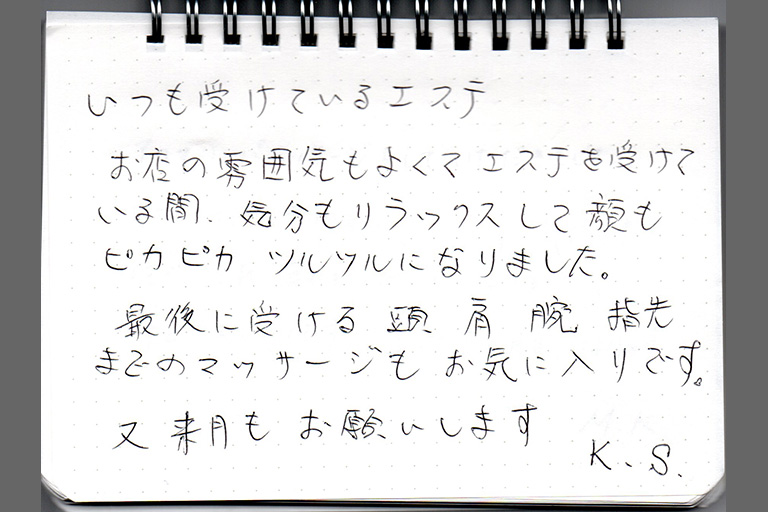 いつも受けているエステ
お店の雰囲気もよくて エステを受けて
いる間、気分もリラックスして顔も
ピカピカ ツルツルになりました。
最後に受ける 頭 肩 腕 指先
までのマッサージも お気に入りです。
又 来月も お願いします
K.S.